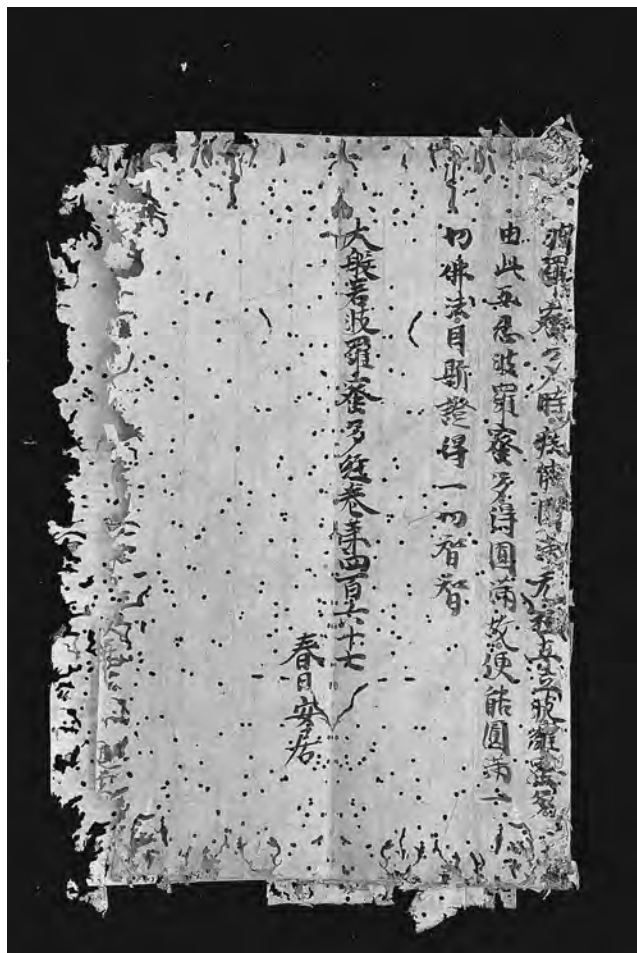 波羅蜜多時疾能圓滿无相安忍波羅蜜多
由此安忍波羅蜜多得圓滿故便能圓滿一
切佛法因斯證得一切智智
大般若波羅蜜多經卷第四百六十七
春日安居